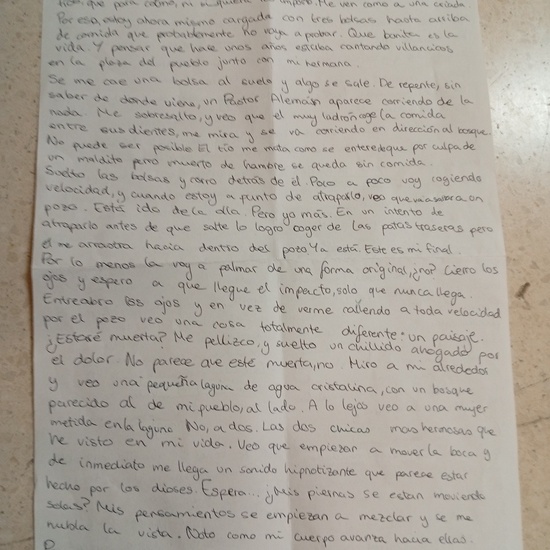 que para colmo, ni siquiera Me ven como a una criada
Por eso, estoy ahora mismo cargada con tres bolsas hasta arriba
de comida que probablemente no vaya a probar. Que bonita es la
vida. Y pensar que hace unos años estaba cantando villancicos
en la plaza del pueblo junto con mi hermana.
Se me cae una bolsa al suelo y algo se sale. De repente, sin
saber de donde viene, un Pastor Alemán aparece corriendo de la
nada. Me sobresalto, y veo que el muy ladrón coge la comida
entre sus dientes, me mira y se va corriendo en dirección al bosque.
No puede ser posible. El tío me mata como se entere de que por culpa de
un maldito perro muerto de hambre se queda sin comida.
Suelto las bolsas y corro detrás de él. Poco a poco voy cogiendo
velocidad, y cuando estoy a punto de atraparlo, veo que va a un
pozo. Está ido de la olla. Pero yo más. En un intento de
atraparlo antes de que salte lo logro coger de las patas traseras pero
él me arrastra hacia dentro del pozo. Ya está. Este es mi final.
Por lo menos la voy a palmar de una forma original, ¿no? Cierro los
ojos y espero a que llegue el impacto, solo que nunca llega.
Entreabro los ojos y en vez de verme callendo a toda velocidad
por el pozo veo una cosa totalmente diferente: un paisaje.
¿Estaré muerta? Me pellizco, y suelto un chillido ahogado por
el dolor. No parece que esté muerta, no. Miro a mi alrededor
y veo una pequeña laguna de agua cristalina, con un bosque
parecido al de mi pueblo, al lado. A lo lejos veo a una mujer
metida en la laguna. No, a dos. Las dos chicas mas hermosas que
he visto en mi vida. Veo que empiezan a mover la boca y
de inmediato me llega un sonido hipnotizante que parece estar
hecho por los dioses. Espera... ¿Mis piernas se estan moviendo
solas? Mis pensamientos se empiezan a mezclar y se me
nubla la vista. Noto como mi cuerpo avanza hacia ellas.